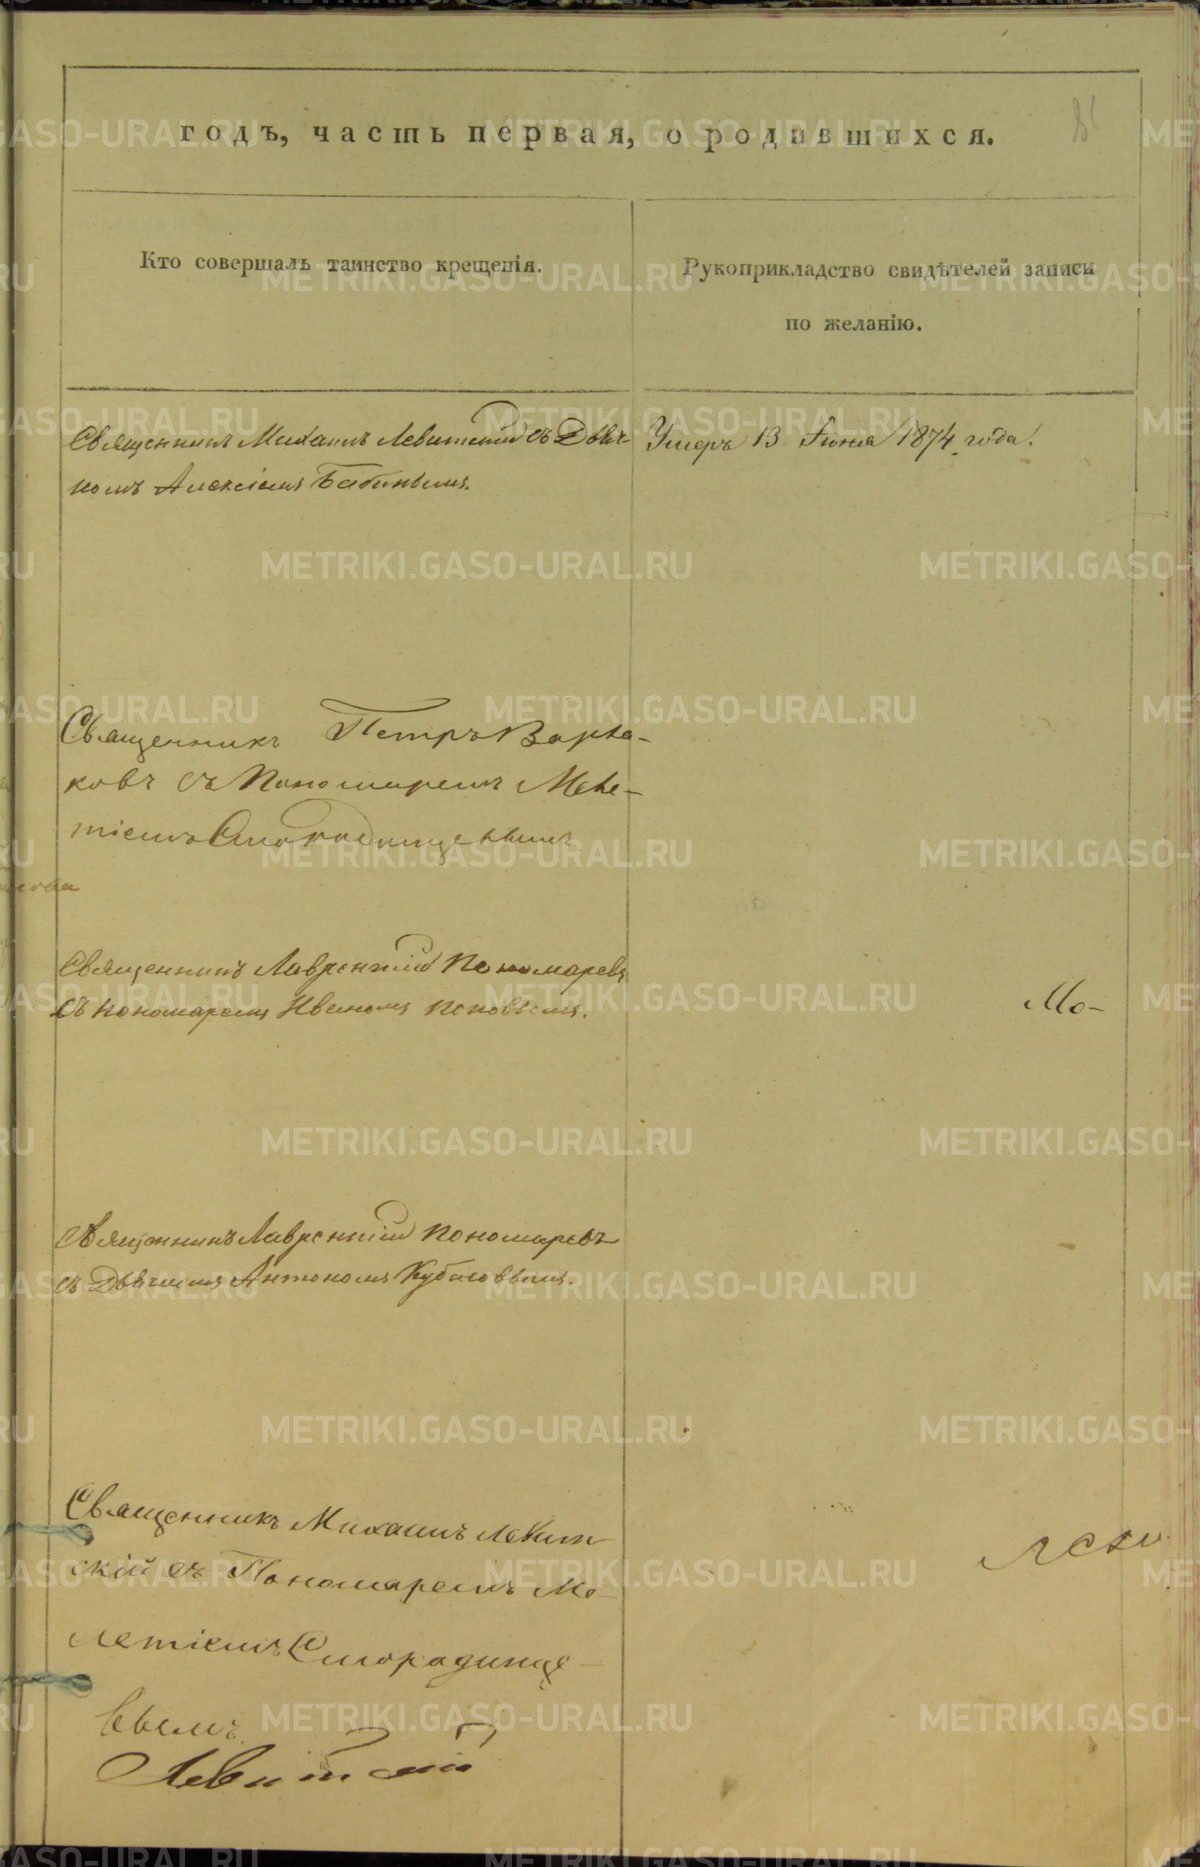 годъ, часть первая, о родившихся.
Кто совершалъ таинство крещенія.
Рукоприкладство свидѣтелей записи
по желанію.
Священникъ Михаилъ Левитскій съ Дьяч-
комъ Алексіемъ Бабинымъ.
Умеръ 13 Іюня 1874 года.
Священникъ Петръ
ковъ съ Пономаремъ Меле-
тіемъ Смородинцевымъ
Священникъ Лаврентій Пономаревъ
съ пономаремъ Иваномъ Поповымъ.
Мо-
Священникъ Лаврентій Пономаревъ
съ Дьячкомъ
Священникъ Михаилъ Левит-
скій съ Пономаремъ Ме-
летіемъ Смородинце-
вымъ
Левитскій
METRIKI.GASO-URAL.RU